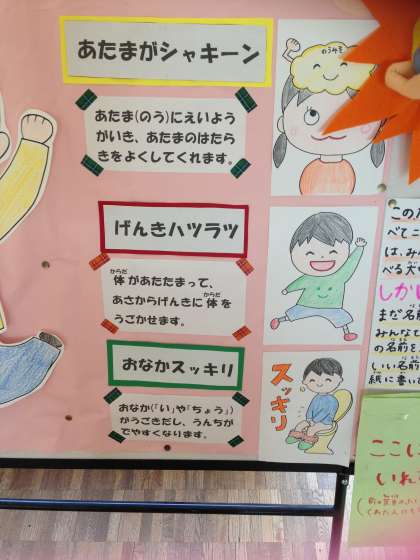 あたまがシャキーン
あたま(のう)にえいよう
がいき、あたまのはたら
きをよくしてくれます。
のうみそ
げんきハツラツ
体があたたまって、
あさからげんきに体を
うごかせます。
おなかスッキリ
おなか(「い」や「ちょう」)
がうごきだし、うんちが
でやすくなります。
スッキリ
このた
べてニ
は、み
べる犬
しかし
まだ名前
みんなで
の名前を
いい名前
紙に書い
ここに
いれ